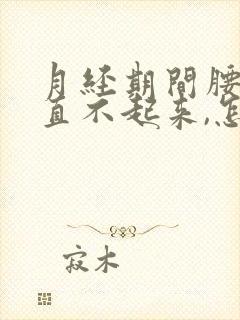 月経期間腰
直不起来,怎
寂木